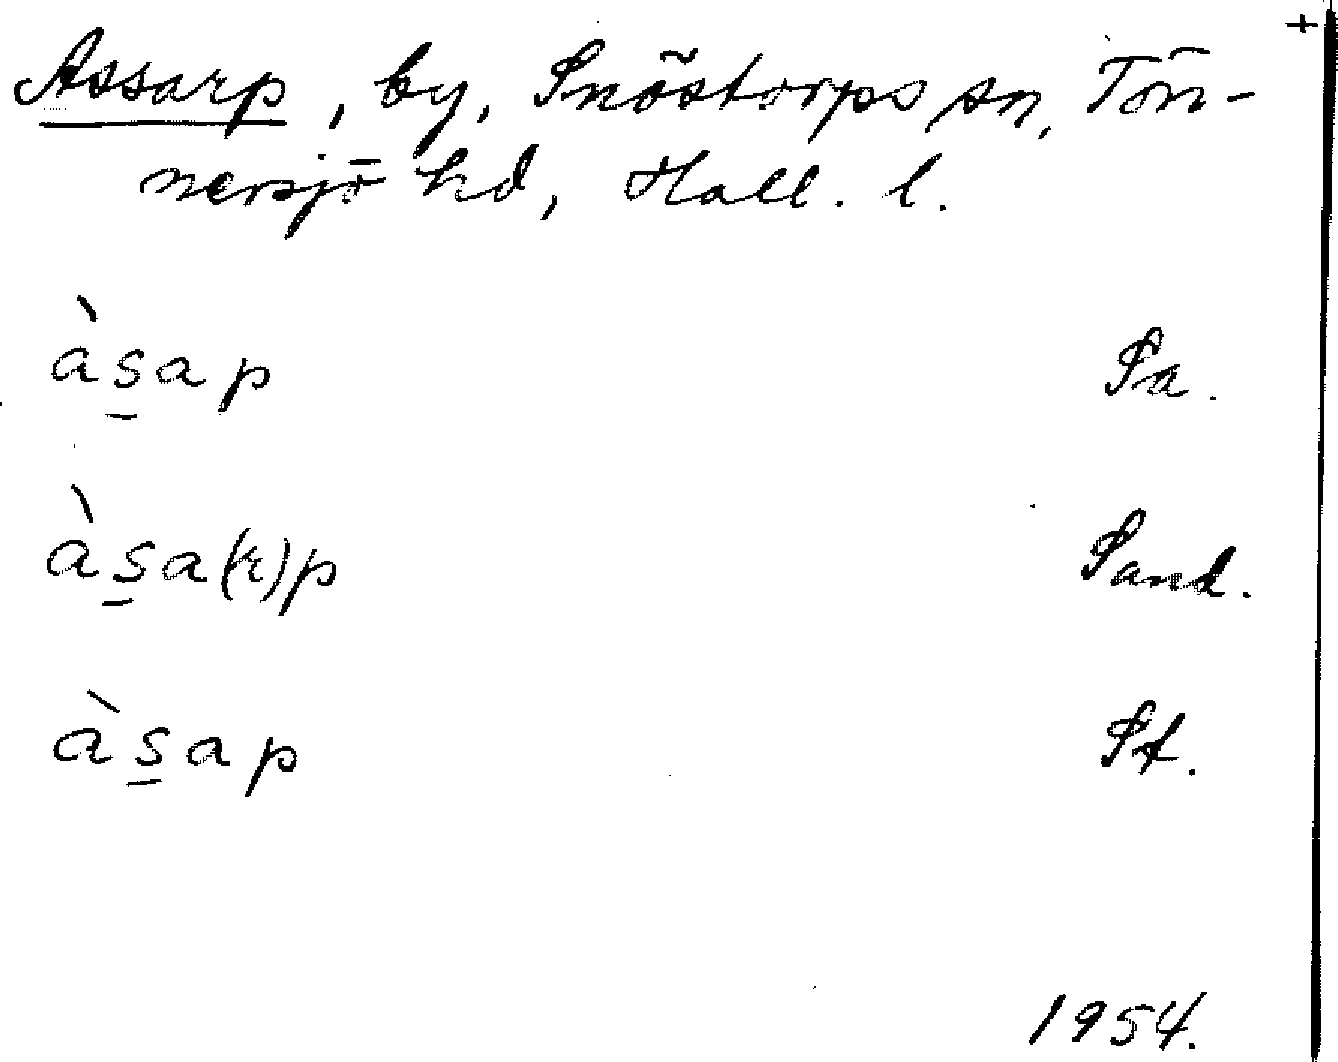 +
Assarp, by, Snöstorps sn, Tön-
nersjö hd, Hall. l.
às̲ap Sa.
às̲a(r)p Sand.
às̲ap St.
1954.